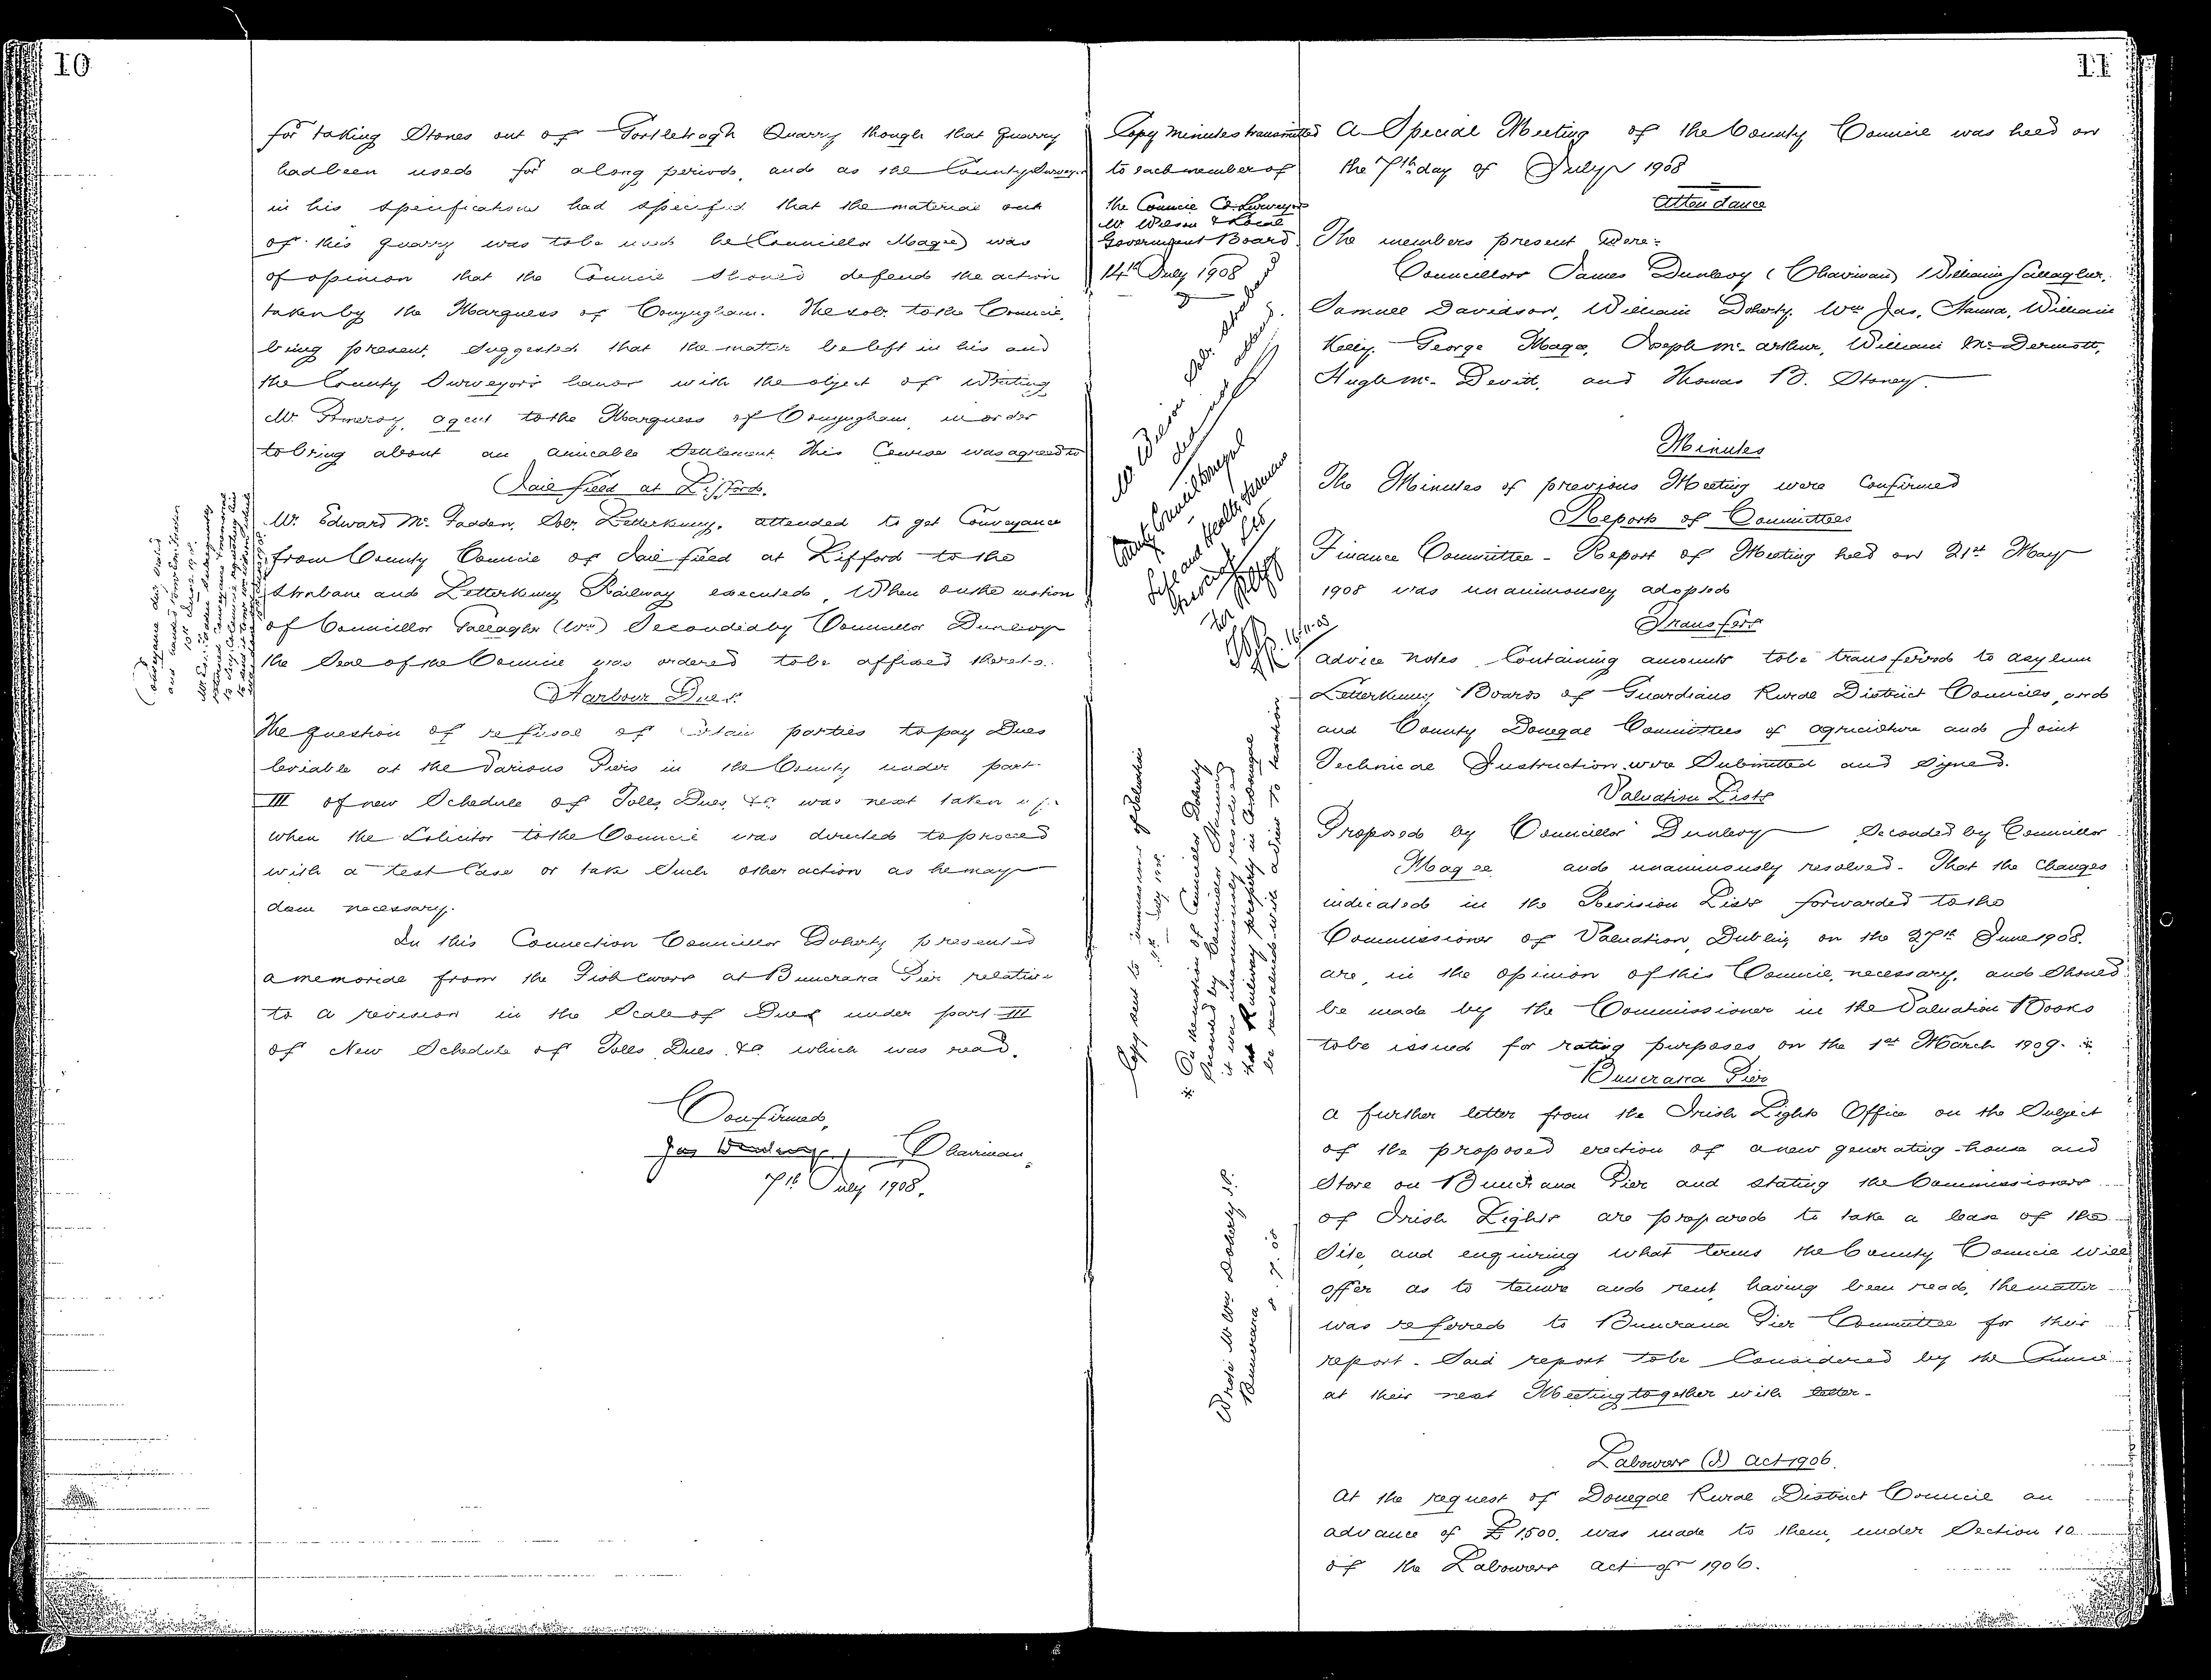 10
for taking Stones out of Gortletragh Quarry though that quarry
had been used for a long period, and as the County Surveyor
in his specification had specified that the material out
of this quarry was to be used he (Councillor Magee) was
of opinion that the Council should defend the action
taken by the Marquess of Conyngham. The solr. to the Council,
being present, suggested that the matter be left in his and
the County Surveyor's hands with the object of writing
Mr. Pomeroy, agent to the Marquess of Conyngham, in order
to bring about an amicable settlement. This Course was agreed to
Jail field at Lifford.
Mr. Edward Mc. Fadden, Solr. Letterkenny, attended to get Conveyance
from County Council of Jail field at Lifford to the
Strabane and Letterkenny Railway executed, When on the motion
of Councillor Gallagher (Wm) Seconded by Councillor Dunlevy
the Seal of the Council was ordered to be affixed thereto.
Harbour Dues.
The question of refusal of certain parties to pay Dues
leviable at the various Piers in the County under part
III of new Schedule of Tolls, Dues, &c. was next taken up
when the Solicitor to the Council was directed to proceed
with a test Case or take such other action as he may
deem necessary.
In this Connection Councillor Doherty presented
a memorial from the Fishcurers at Buncrana Pier relative
to a revision in the Scale of Dues under part III
of New Schedule of Tolls, Dues, &c. which was read.
Confirmed,
Jas Dunlevy, Chairman,
7th July 1908.
11
Copy minutes transmitted
to each member of
the Council Co. Surveyor
Mr. Wilson & Local
Government Board
14th July 1908
A Special Meeting of the County Council was held on
the 7th day of July 1908
Attendance
The members present were:-
Councillors James Dunlevy (Chairman) William Gallagher,
Samuel Davidson, William Doherty, Wm Jas. Hanna, William
Kelly, George Magee, Joseph Mc. Arthur, William Mc. Dermott,
Hugh Mc. Devitt, and Thomas B. Stoney.
Minutes
The Minutes of previous Meeting were Confirmed
Reports of Committees
Finance Committee - Report of Meeting held on 21st May
1908 was unanimously adopted
Transfers
Advice notes Containing amounts to be transferred to asylum
Letterkenny, Boards of Guardians Rural District Councils, and
and County Donegal Committees of agriculture and Joint
Technical Instruction were Submitted and Signed.
Valuation Lists
Proposed by Councillor Dunlevy Seconded by Councillor
Magee and unanimously resolved - That the Changes
indicated in the Revision Lists forwarded to the
Commissioner of Valuation, Dublin, on the 27th June 1908.
are, in the opinion of this Council, necessary, and should
be made by the Commissioner in the Valuation Books
to be issued for rating purposes on the 1st March 1909.
Copy sent to Commissioner of Valuation
On the motion of Councillor Doherty
Seconded by Councillor
it was unanimously resolved
that Railway property in Co Donegal
be revalued with a view to taxation
Buncrana Pier
A further letter from the Irish Lights Office on the Subject
of the proposed erection of a new generating-house and
Store on Buncrana Pier and stating the Commissioners
of Irish Lights are prepared to take a lease of the
Site, and enquiring what terms the County Council will
offer as to tenure and rent, having been read, the matter
was referred to Buncrana Pier Committee for their
report. Said report to be Considered by the Council
at their next Meeting together with letter.
Wrote Mr Wm Doherty J.P.
Buncrana 8.7.08
Labourers (I) Act 1906.
At the request of Donegal Rural District Council an
advance of £1500. was made to them, under Section 10
of the Labourers Act of 1906.